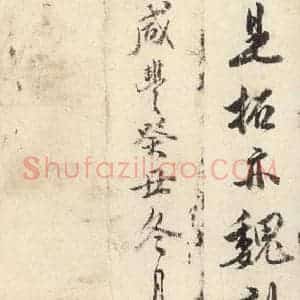 見拓亦魏
咸豐癸丑冬月
Shufaziliao.COM